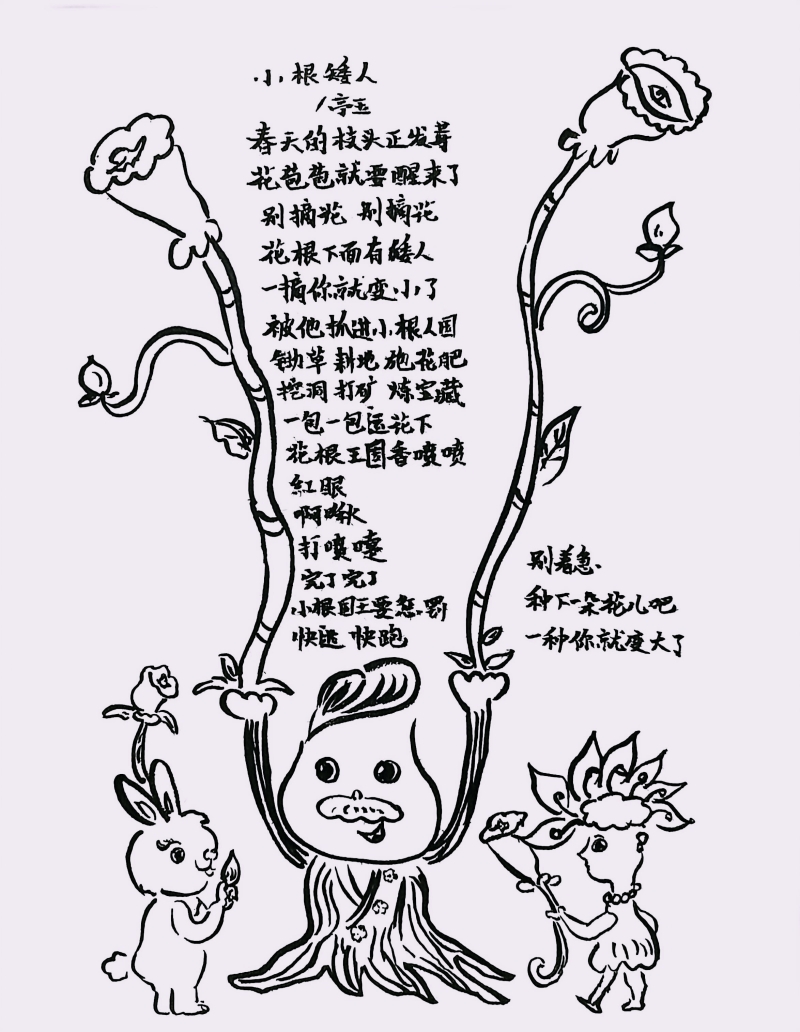 小根矮人
/亭玉
春天的枝头正发荨
花苞苞就要醒来了
别摘花 别摘花
花根下面有矮人
一摘你就变小了
被他抓进小根人国
锄草耕地施花肥
挖洞打矿 炼宝藏
一包一包运花下
花根王国香喷喷
红眼
啊啾
打喷嚏
完了完了
小根国王要惩罚
快逃 快跑
别着急
种下一朵花儿吧
一种你就变大了